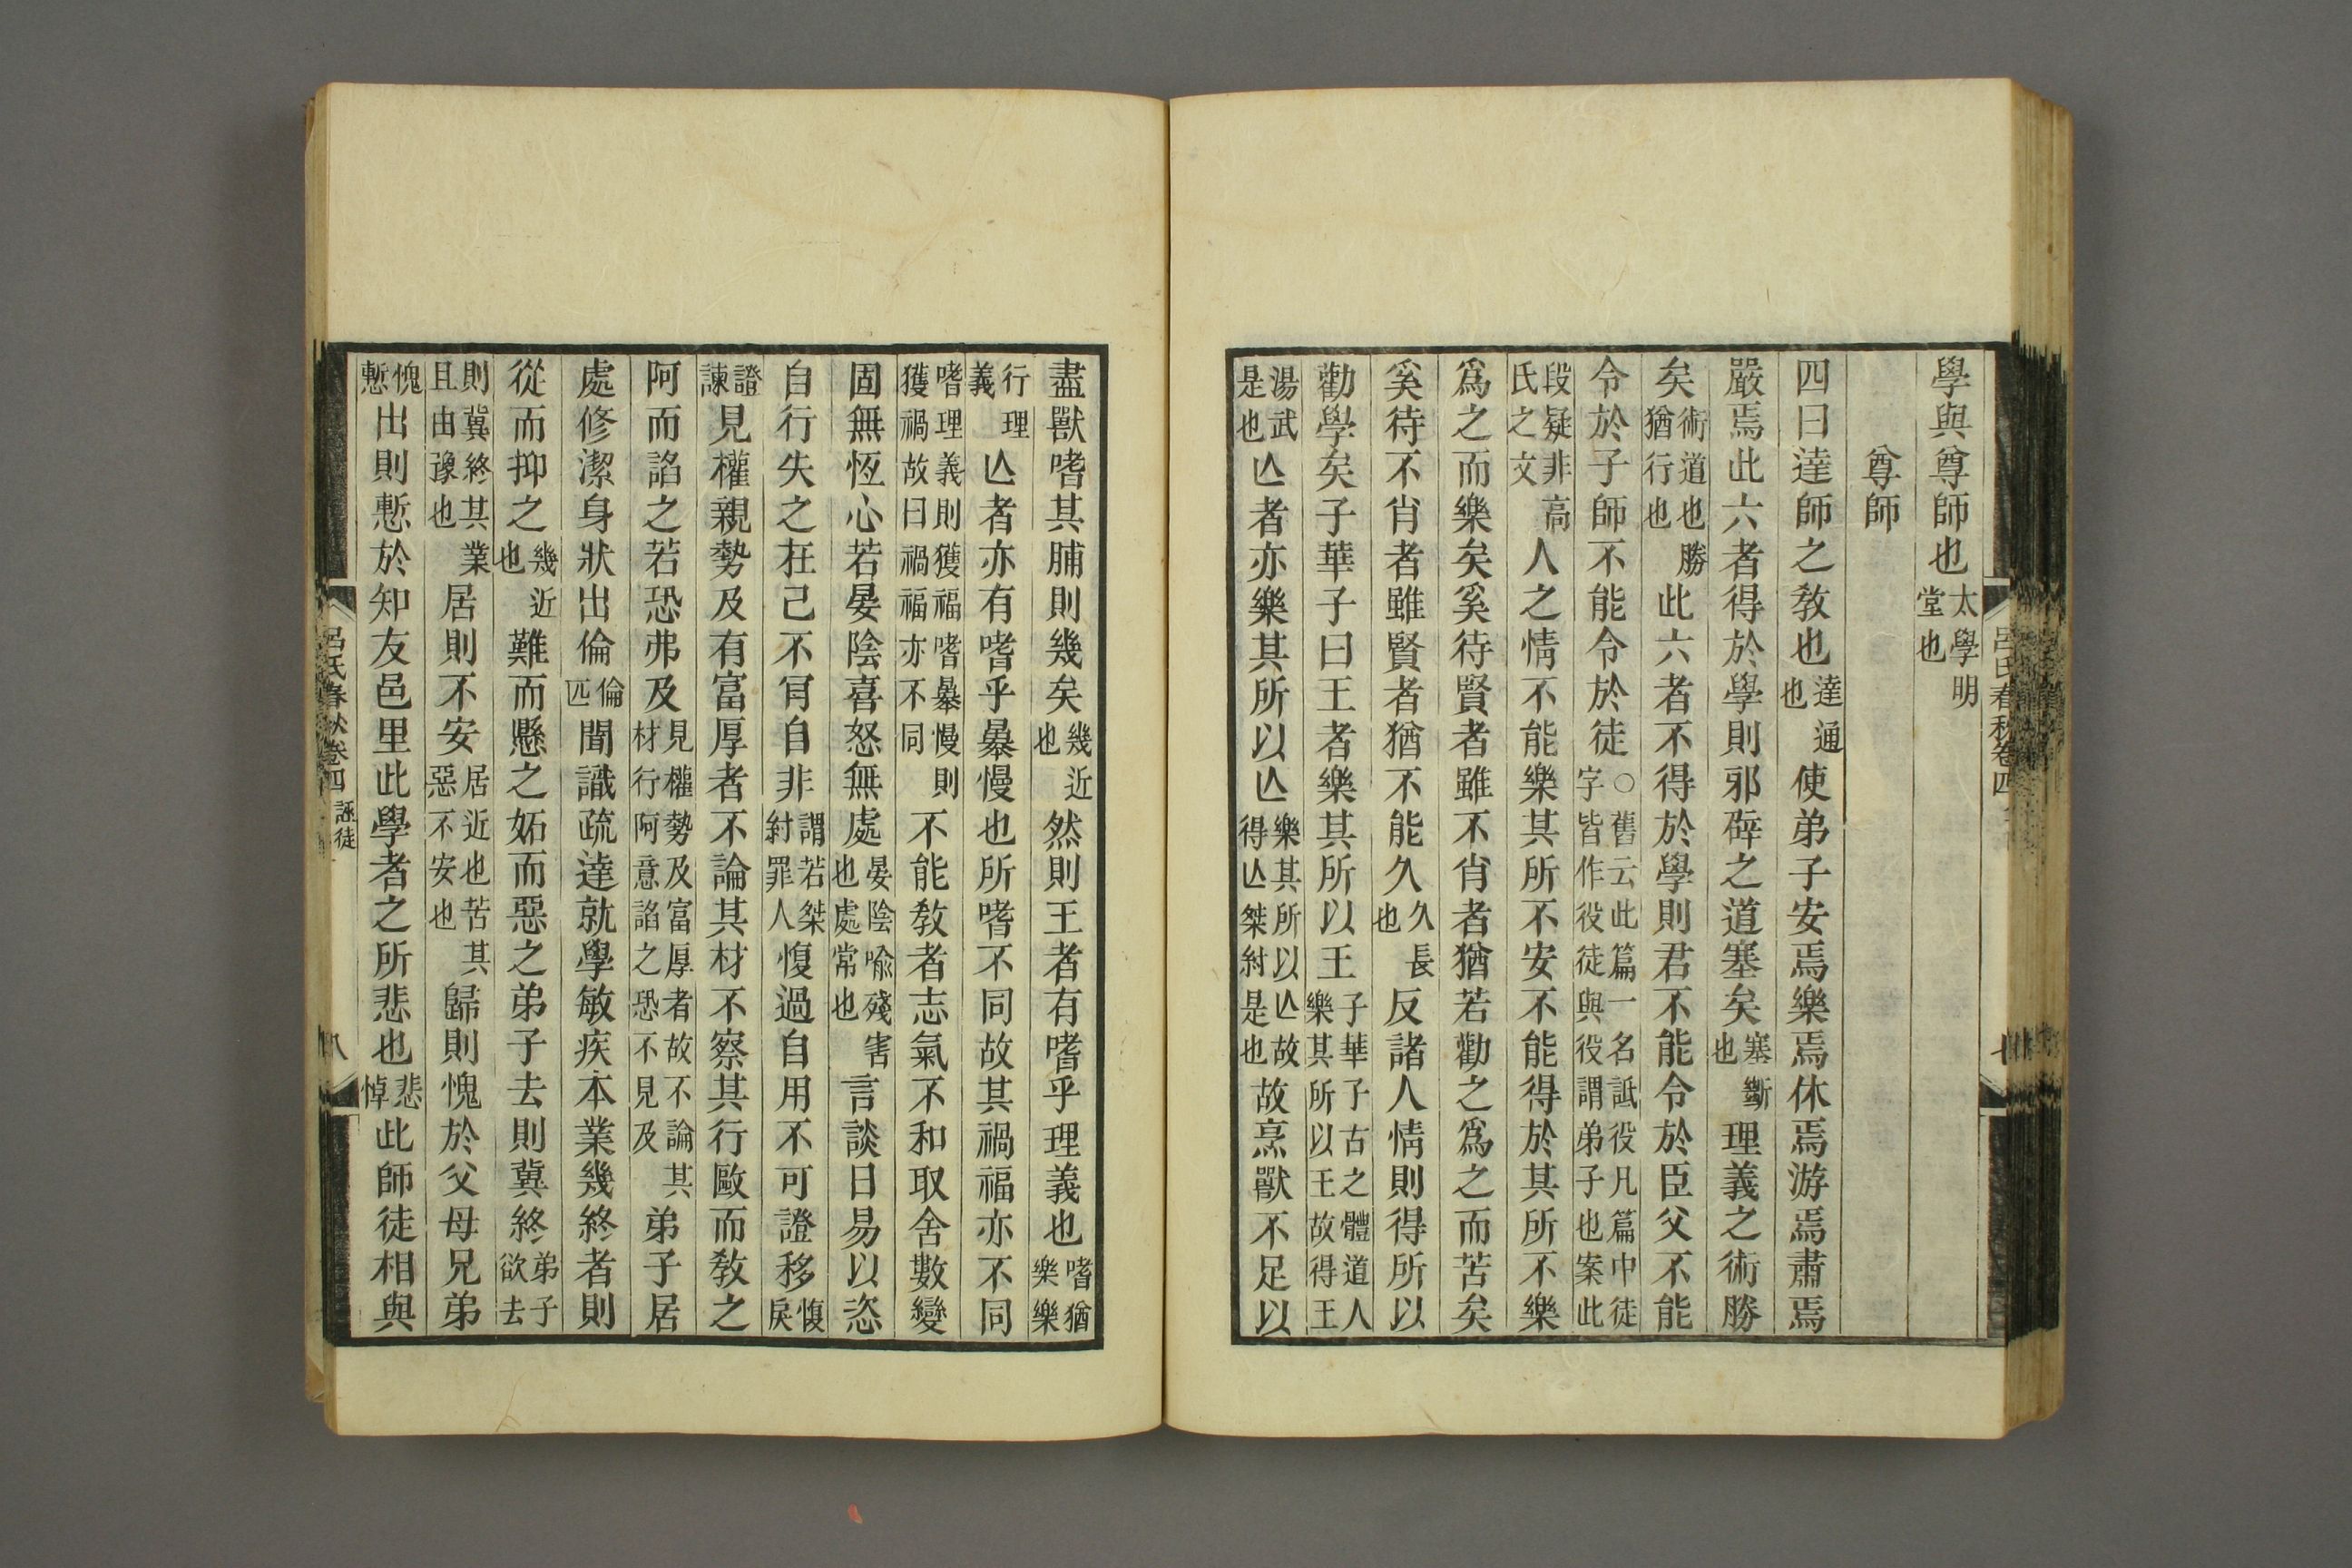 呂氏春秋卷四
學與尊師也太學明堂也
尊師
四曰達師之敎也達通也使弟子安焉樂焉休焉游焉肅焉
嚴焉此六者得於學則邪辟之道塞矣塞斷也理義之術勝
矣術道也勝猶行也此六者不得於學則君不能令於臣父不能
令於子師不能令於徒○舊云此篇一名詆役凡篇中徒字皆作役徒與役謂弟子也案此
段疑非高氏之文人之情不能樂其所不安不能得於其所不樂
爲之而樂矣奚待賢者雖不肖者猶若勸之爲之而苦矣
奚待不肖者雖賢者猶不能久久長也反諸人情則得所以
勸學矣子華子曰王者樂其所以王子華子古之體道人樂其所以王故得王
湯武是也亾者亦樂其所以亾樂其所以亾故得亾桀紂是也故烹獸不足以
盡獸嗜其脯則幾矣幾近也然則王者有嗜乎理義也嗜猶樂樂
行理義亾者亦有嗜乎暴慢也所嗜不同故其禍福亦不同
嗜理義則獲福嗜暴慢則獲禍故曰禍福亦不同不能敎者志氣不和取舍數變
固無恆心若晏陰喜怒無處晏陰喻殘害也處常也言談日易以恣
自行失之在己不肎自非謂若桀紂罪人愎過自用不可證移愎戾
證諫見權親勢及有富厚者不論其材不察其行歐而敎之
阿而諂之若恐弗及見權勢及富厚者故不論其材行阿意諂之恐不見及弟子居
處修潔身狀出倫倫匹聞識疏達就學敏疾本業幾終者則
從而抑之幾近也難而懸之妬而惡之弟子去則冀終弟子欲去
則冀終其業且由豫也居則不安居近也苦其惡不安也歸則愧於父母兄弟
愧慙出則慙於知友邑里此學者之所悲也悲悼此師徒相與
呂氏春秋卷四 誣徒 八